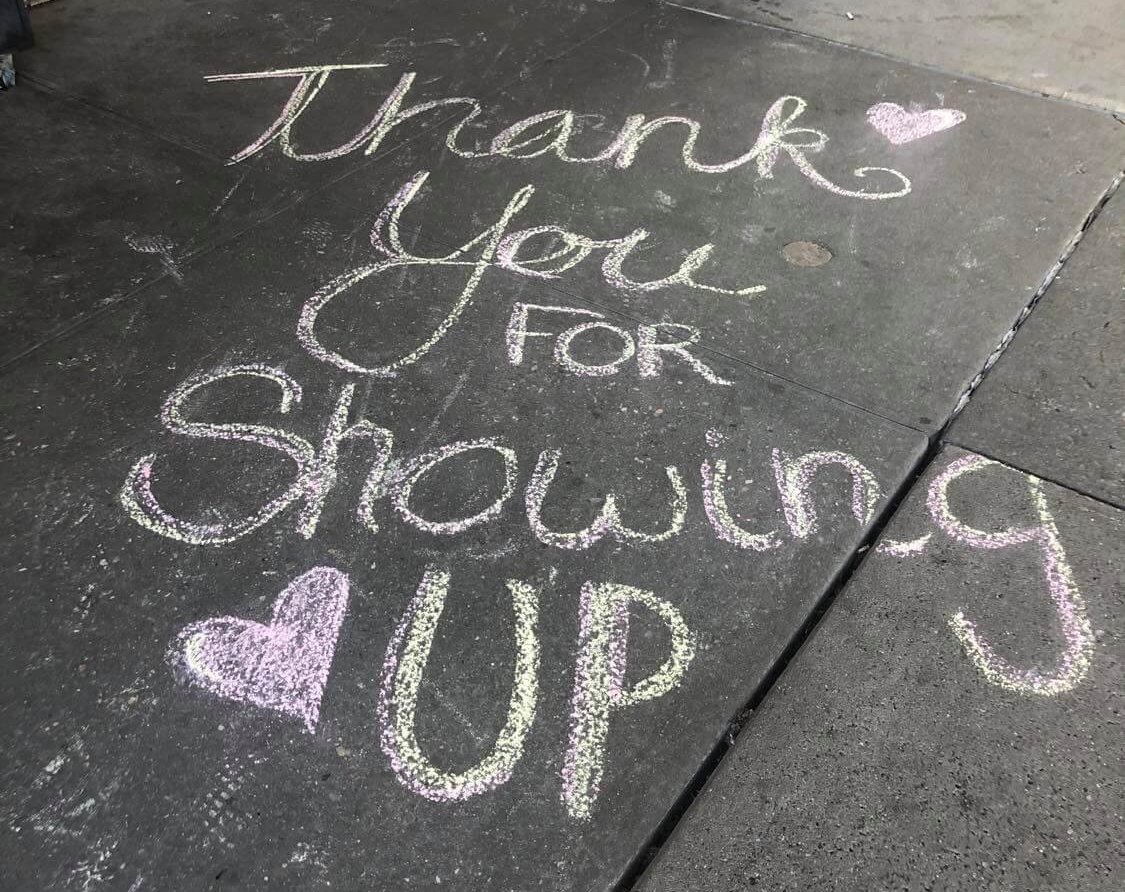 Thank
You
FOR
Showing
UP